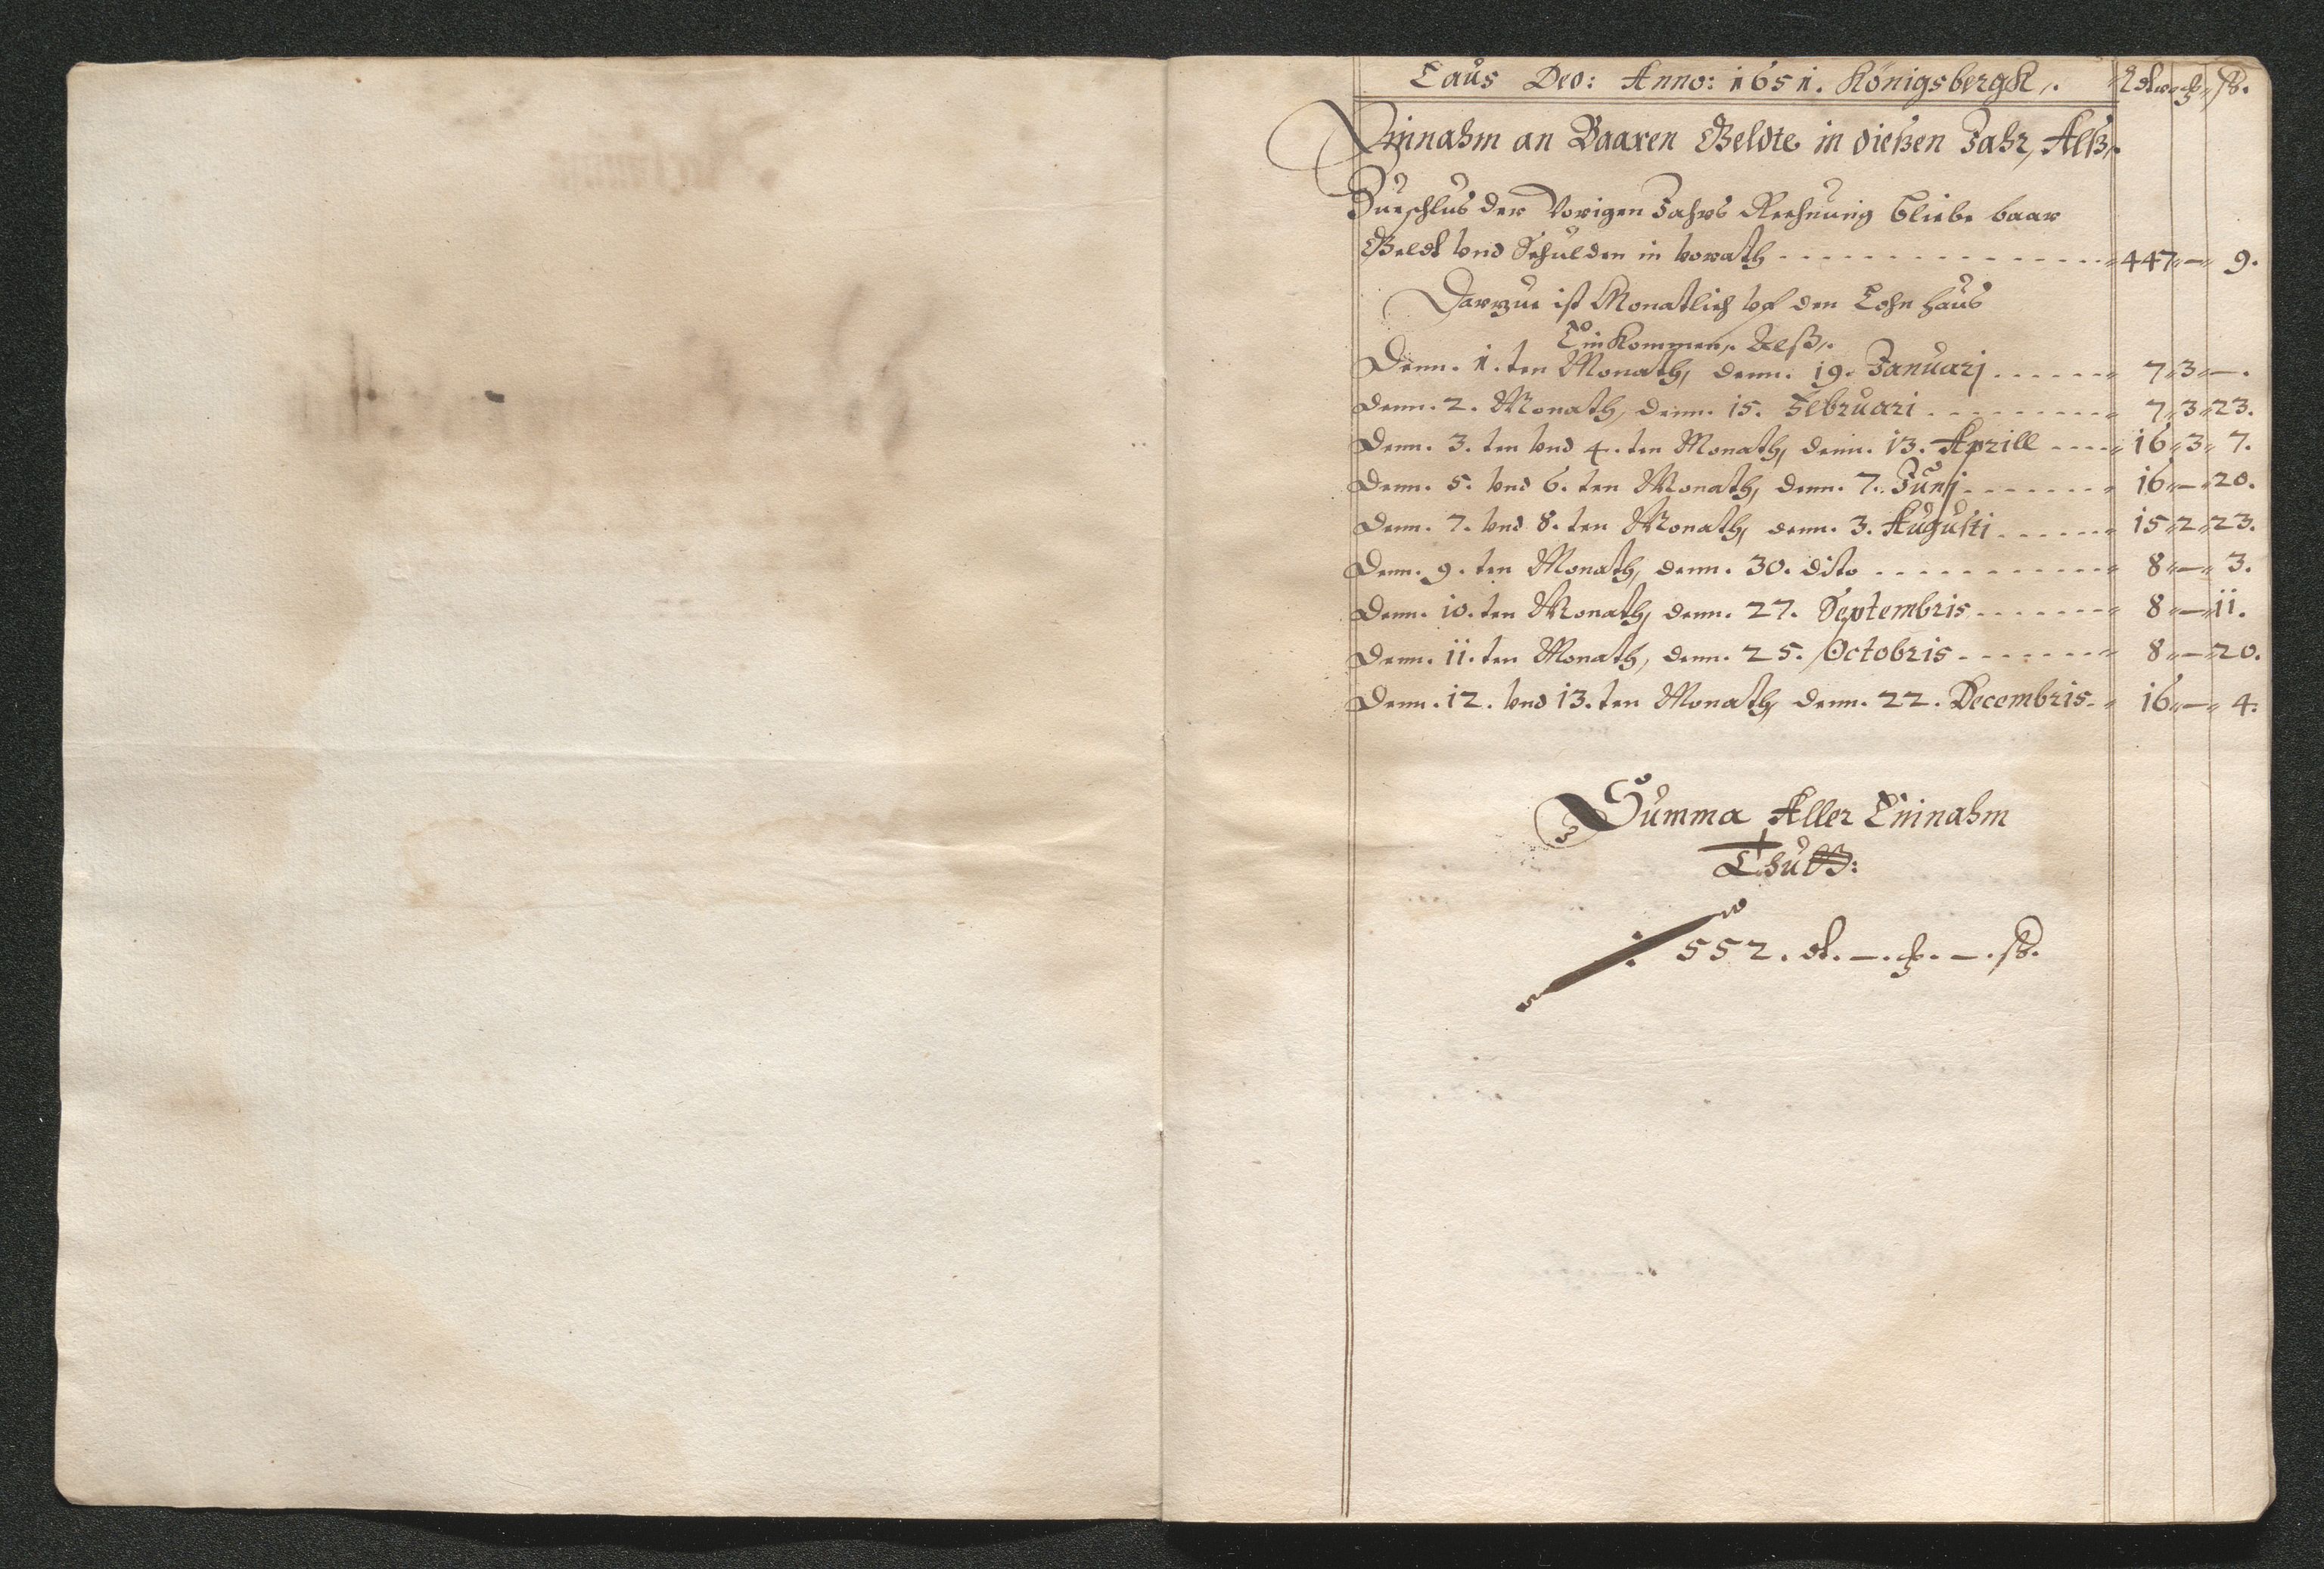 Laus Deo: Anno: 1651. Königsbergk. Rthr ggr ₰.
Einnahm an Baaren Geldte in dießen Jahr, Alß.
Zueschlus der Vorigen Jahrs Rechnung bliebe baar
Geldt vnd Schulden in vorath 447 — 9.
Darzue ist Monatlich vf den Lohn haus
Einkommen, Alß.
Denn. 1. ten Monath, denn. 19. Januarj 7 3 —.
Denn. 2. Monath, denn. 15. Februari 7 3 23.
Denn. 3. ten vnd 4. ten Monath, denn. 13. Aprill 16 3 7.
Denn. 5. vnd 6. ten Monath, denn. 7. Junj 16 — 20.
Denn. 7. vnd 8. ten Monath, denn. 3. Augusti 15 2 23.
Denn. 9. ten Monath, denn. 30. dito 8 — 3.
Denn. 10. ten Monath, denn. 27. Septembris 8 — 11.
Denn. 11. ten Monath, denn. 25. Octobris 8 — 20.
Denn. 12. vnd 13. ten Monath, denn. 22. Decembris 16 — 4.
Summa Aller Einnahm
Thutt:
552. — . — .